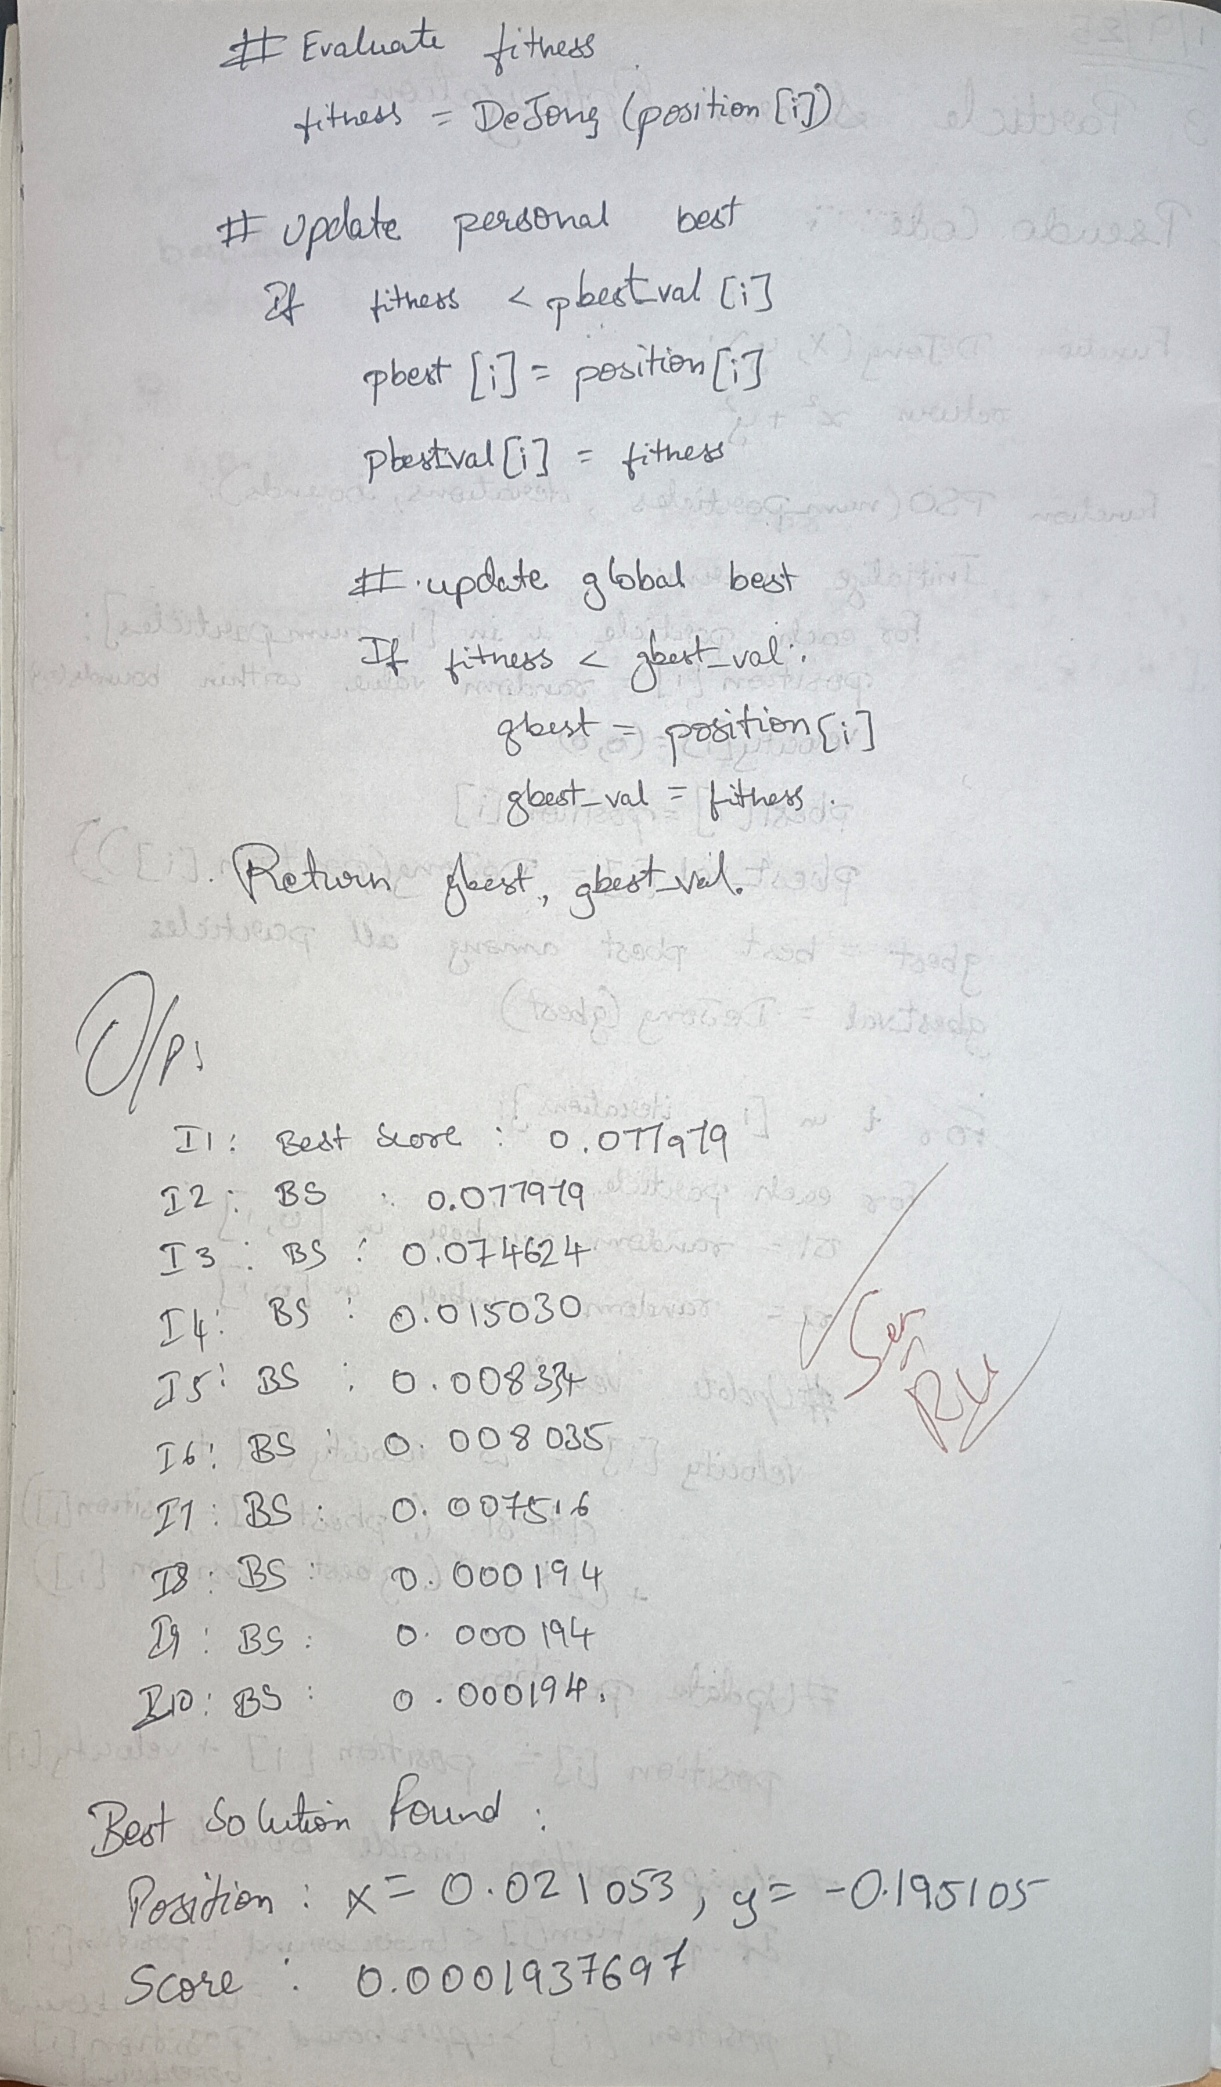 # Evaluate fitness
fitness = DeJong (position [i])
# update personal best
If fitness < pbest_val [i]
pbest [i] = position [i]
pbestval [i] = fitness
# update global best
If fitness < gbest_val :
gbest = position [i]
gbest_val = fitness .
Return gbest, gbest_val.
O/p:
I1 : Best Score : 0.077979
I2 : BS : 0.077979
I3 : BS : 0.074624
I4 : BS : 0.015030
I5 : BS : 0.00834
I6 : BS : 0.008035
I7 : BS : 0.007516
I8 : BS : 0.000194
I9 : BS : 0.000194
I10 : BS : 0.000194.
Best Solution Found :
Position : x = 0.021053, y = -0.195105
Score : 0.0001937697